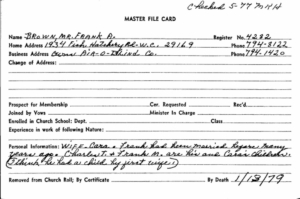 Checked 5-77 MKH
MASTER FILE CARD
Name BROWN, MR. FRANK A. Register No. 4282
Home Address 1934 Fish Hatchery Rd. W.C. 29169 Phone 794-8122
Business Address Owns Air-O-Blind Co. Phone 794-1420
Change of Address:
Prospect for Membership Cer. Requested Rec'd.
Joined by Vows Minister in Charge
Enrolled in Church School: Dept. Class
Experience in work of following Nature:
Personal Information: WIFE-Cora + Frank had been married before many
years ago. Charles T. + Frank Jr. are his and Cora's children.
(I think he had a child by first wife.)
Removed from Church Roll; By Certificate By Death 1/13/79